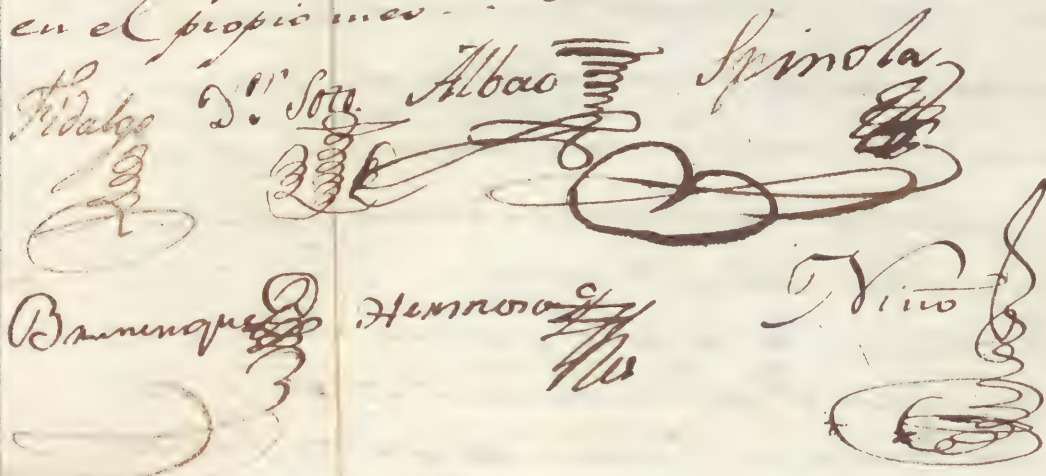 en el propio mes.
Fidalgo Dr. Soto. Albao Spinola
Brunenque Hermoso Nino